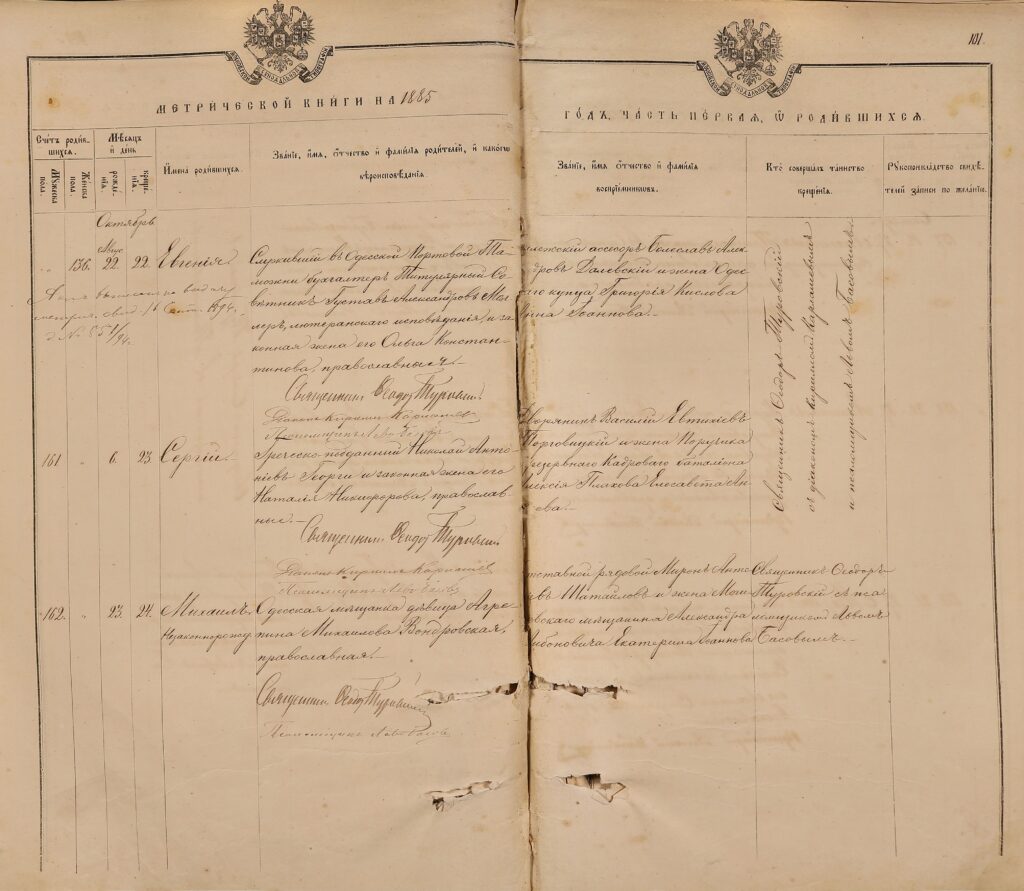 101.
МЕТРИЧЕСКОЙ КНИГИ НА 1885
ГОДЪ, ЧАСТЬ ПЕРВАЯ, Ѿ РОДИВШИХСЯ.
Счетъ родив-
шихся.
Мужеска
пола.
Женска
пола.
Мѣсяцъ
и день
рожде-
нія.
креще-
нія.
Имена родившихся.
Званіе, имя, отчество и фамилія родителей, и какого
вѣроисповѣданія.
Званіе, имя отчество и фамилія
воспріемниковъ.
Кто совершалъ таинство
крещенія.
Рукоприкладство свидѣ-
телей записи по желанію.
Октябрь
Авгус.
136. 22. 22. Евгенія
Служившій въ Одесской Портовой Та-
можни бухгалтеръ Титулярный Со-
вѣтникъ Густавъ Александровъ Мол-
леръ, лютеранскаго исповѣданія и за-
конная жена его Ольга Констан-
тинова, православныя.
метрич. свид. 15 Сент. 1894.
№ 851/94.
Священникъ Ѳеодоръ Туровскій
Діаконъ Кириллъ
Псаломщикъ
лежскій ассесоръ Болеславъ Алек
дровъ Далевскій и жена Одес
аго купца Григорія Кислова
нна Іоаннова.
Священникъ Ѳеодоръ Туровскій
съ діакономъ Кирилломъ
и псаломщикомъ Львомъ Басовымъ
161 " 6. 23. Сергій.
Греческо-подданный Николай Анто-
ніевъ Георги и законная жена его
Наталія Никифорова, православ-
ные.
Священникъ Ѳеодоръ Туровскій
Діаконъ Кириллъ
Псаломщикъ
Дворянинъ Василій Евтихіевъ
Торговицкій и жена Поручика
резервнаго Кадроваго баталіона
лексія Плахова Елисавета Ан
еева.
162. " 23. 24. Михаилъ
Незаконнорожд
Одесская мѣщанка дѣвица Агре-
пина Михаилова Вондровская,
православная.
Священникъ Ѳеодоръ Туровскій
Псаломщикъ Левъ Басовъ
тставной рядовой Миронъ Анто
въ Шатайловъ и жена Моги
вскаго мѣщанина Александра
Екатерина Іоаннова
Священникъ Ѳеодоръ
Туровскій съ пса-
ломщикомъ Львомъ
Басовымъ.